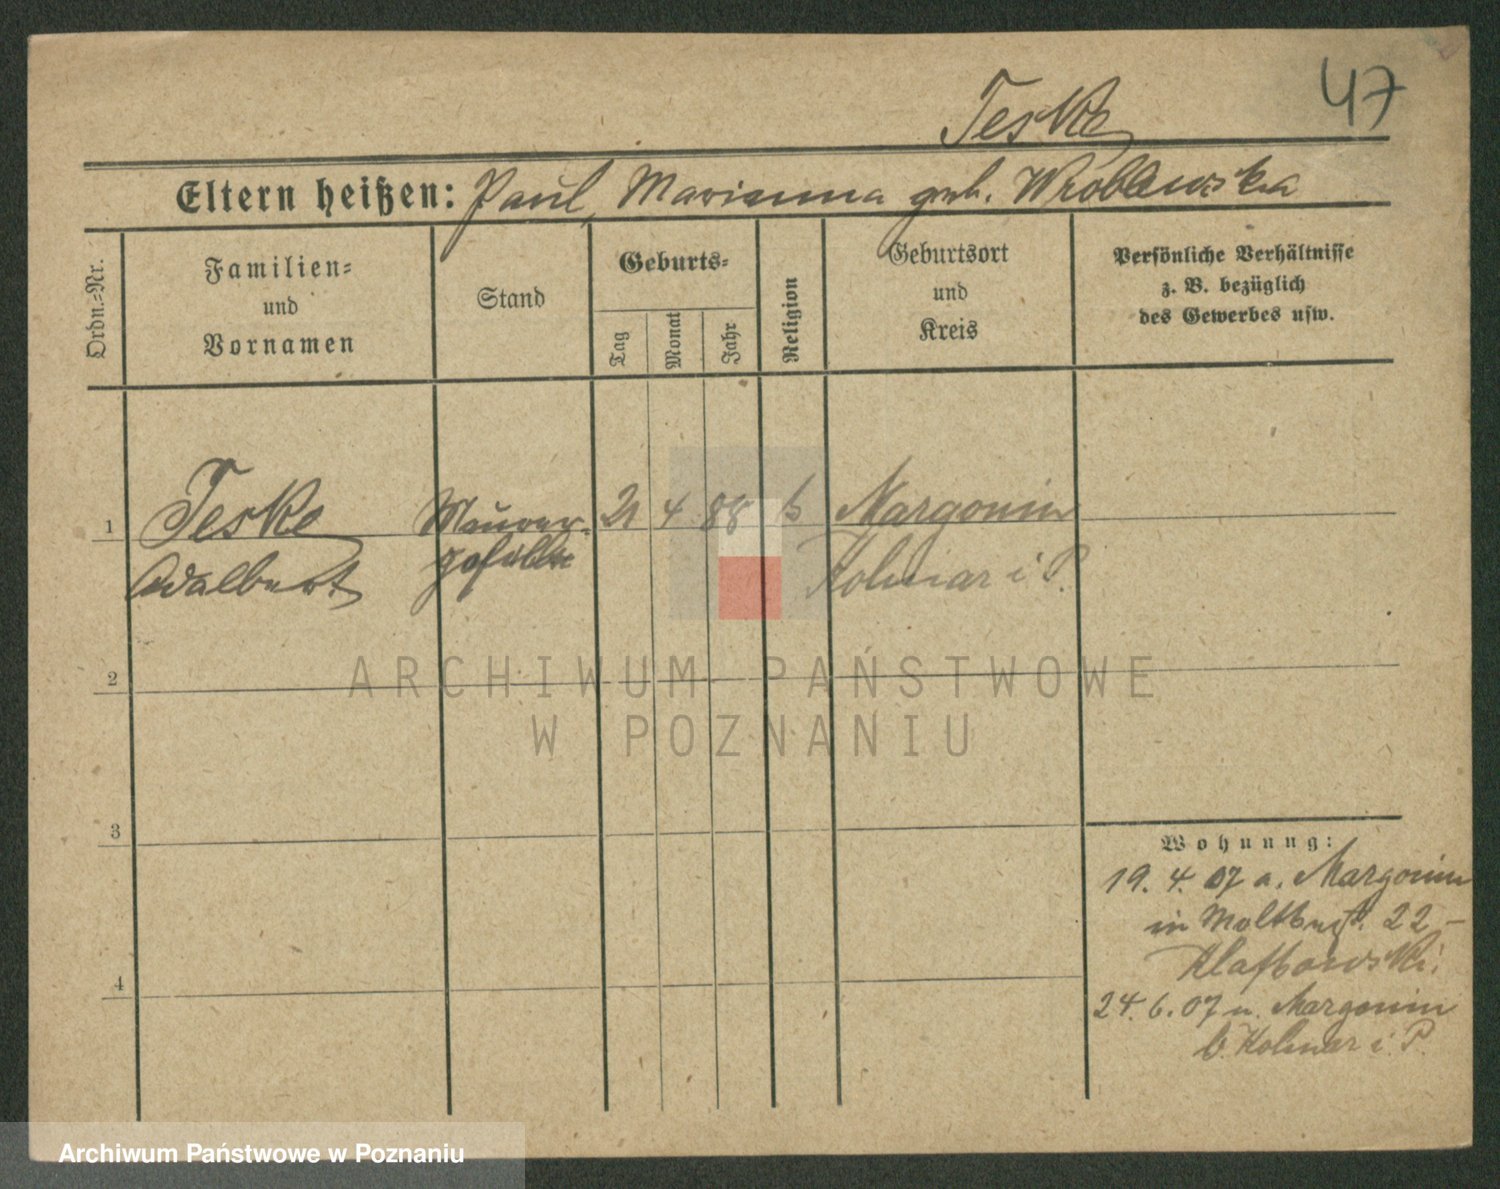 47
Teske
Eltern heißen: Paul, Marianna geb. Wroblewska
Ordn.-Nr.
Familien-
und
Vornamen
Stand
Geburts-
Tag
Monat
Jahr
Religion
Geburtsort
und
Kreis
Persönliche Verhältnisse
z. B. bezüglich
des Gewerbes usw.
1
Teske
Adalbert
Maurer-
geselle
21 4 88
Margonin
Kolmar i P.
2
ARCHIWUM PAŃSTWOWE
W POZNANIU
3
Wohnung:
19. 4. 07 a. Margonin
in 22 –
4
24. 6. 07 n. Margonin
b. Kolmar i. P.
Archiwum Państwowe w Poznaniu